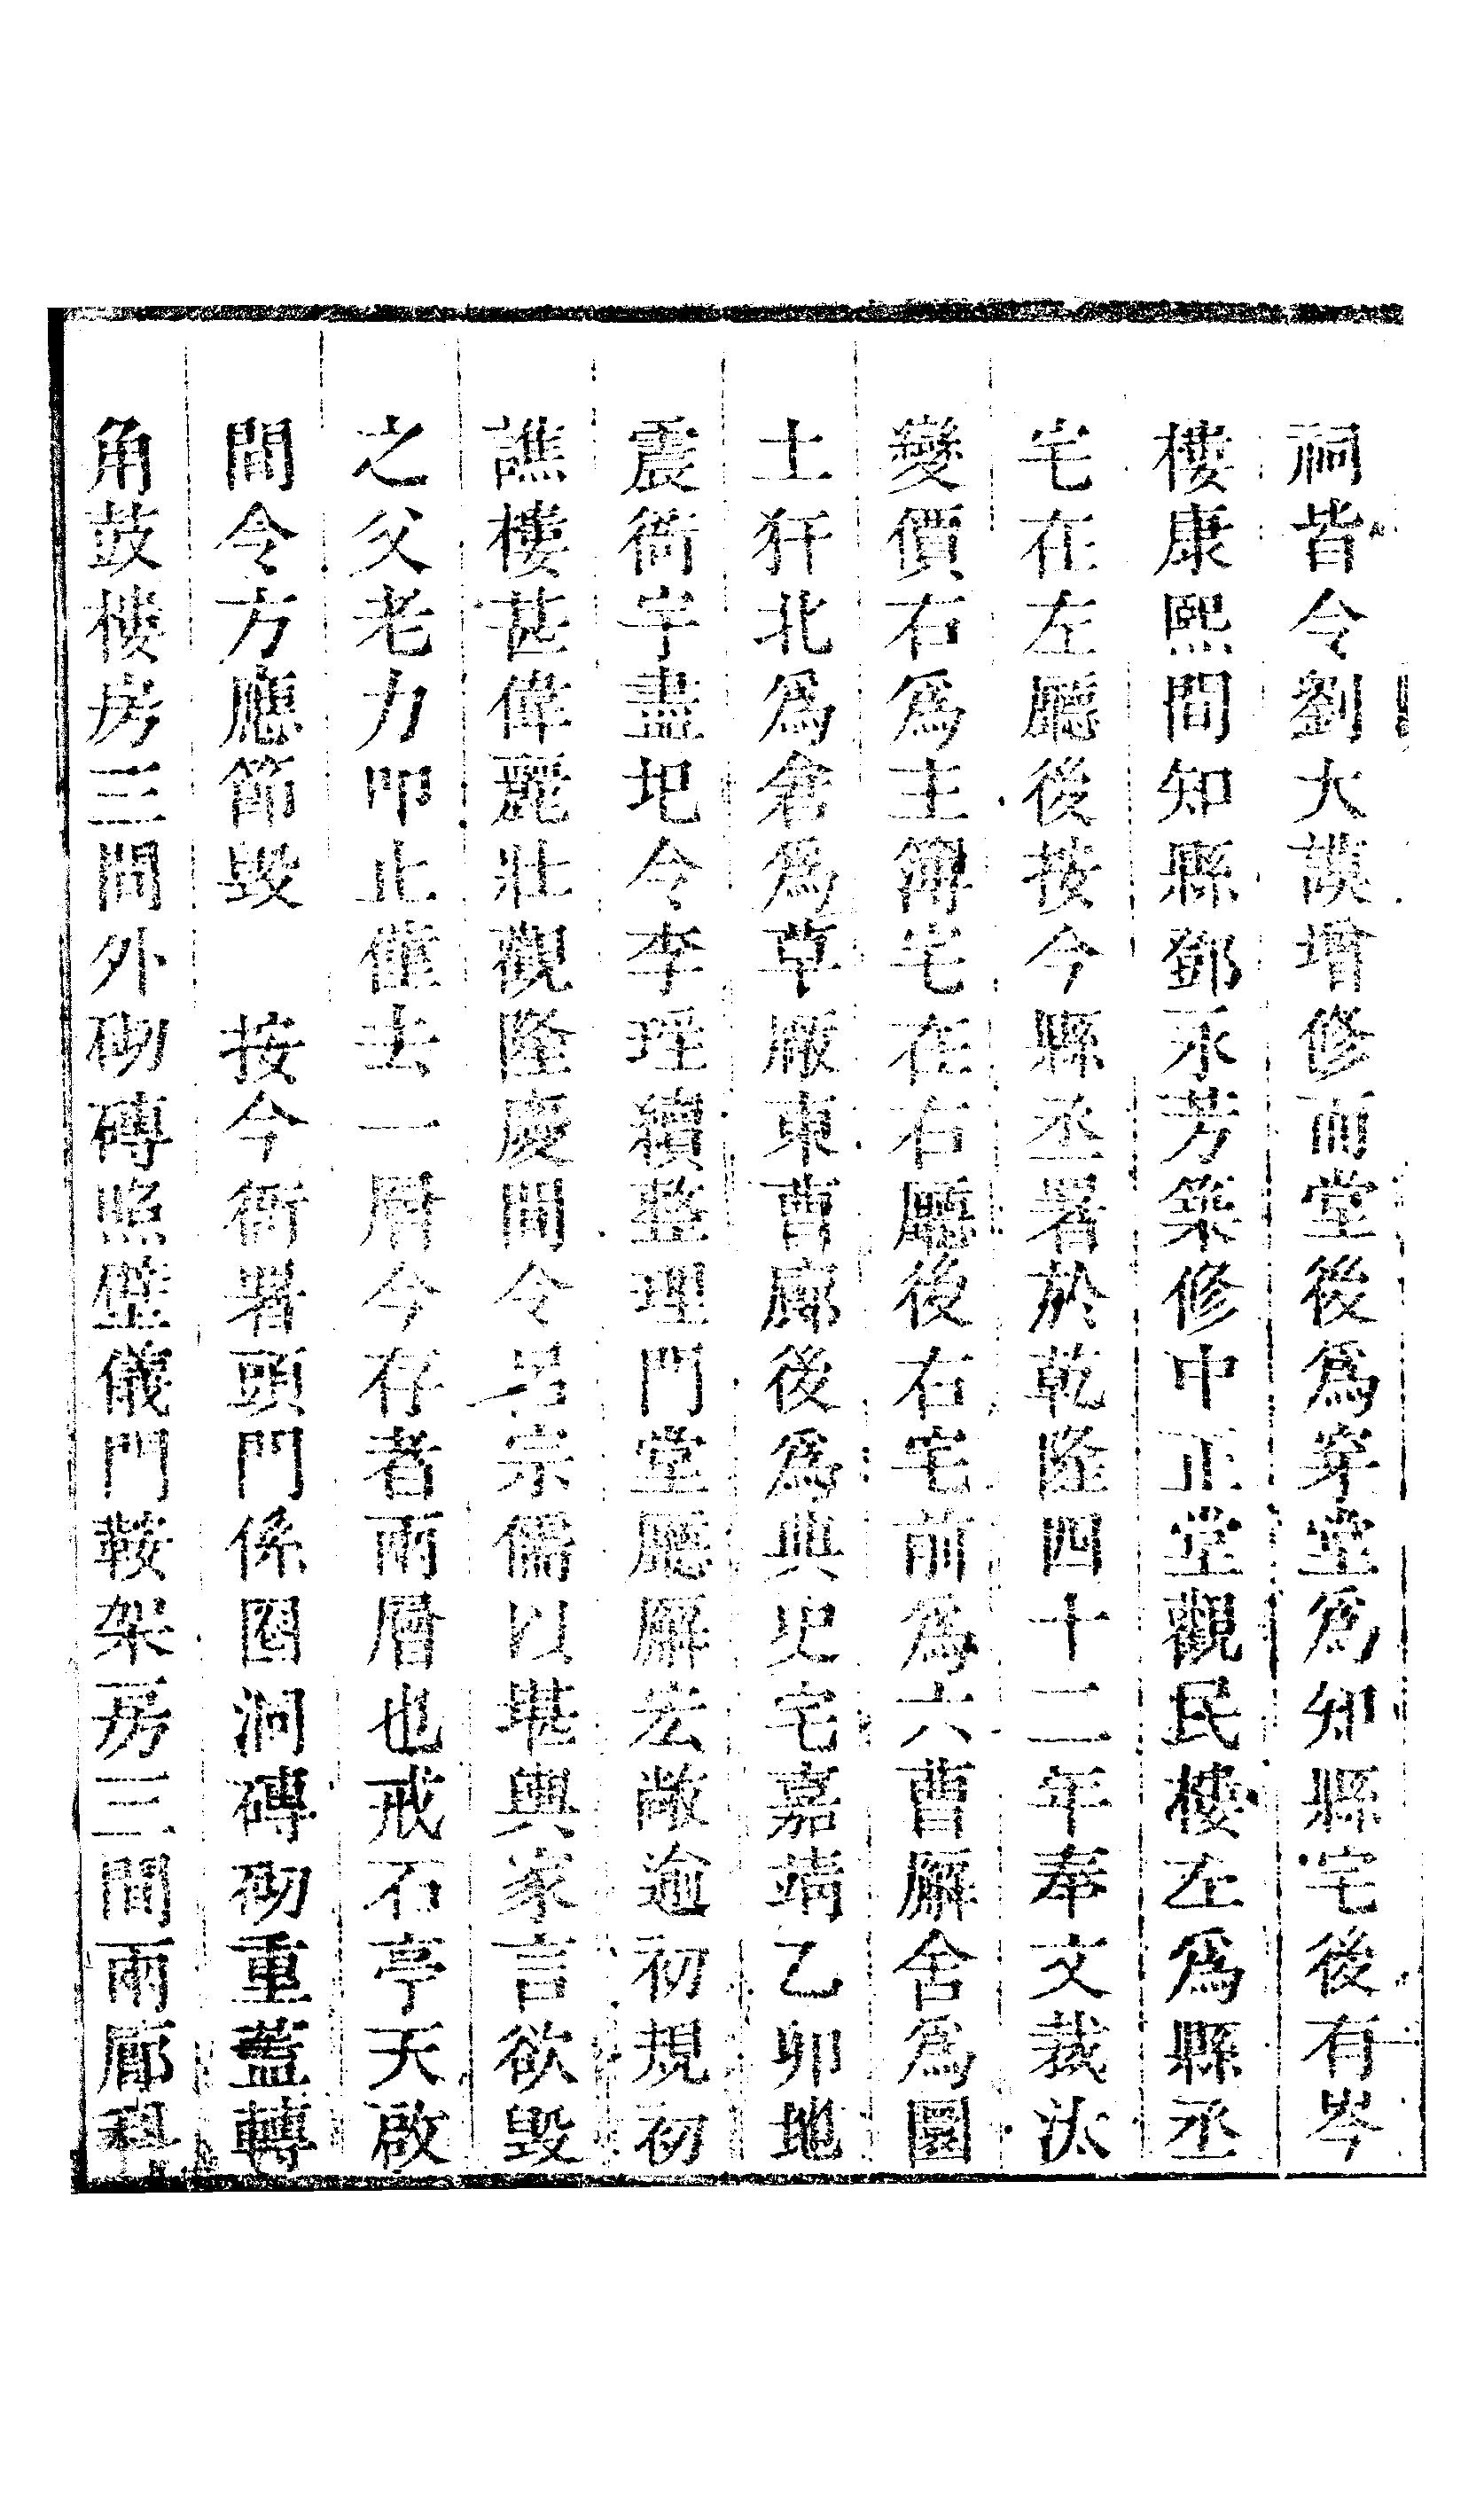 祠皆令劉大謨增修而堂後爲穿堂爲知縣宅後有岑
樓康熙間知縣鄧永芳築修中正堂觀民樓左爲縣丞
宅在左廳後按今縣丞署於乾隆四十二年奉文裁汰
變價右爲主簿宅在右廳後右宅前爲六曹廨舍爲圜
土犴北爲倉爲草厰東曹廊後爲典史宅嘉靖乙卯地
震衙宇盡圯令李理續整理門堂廳廨宏敞逾初規初
譙樓甚偉麗壯觀隆慶間令呂宗儒以堪輿家言欲毀
之父老力叩止僅去一層今存者兩層也戒石亭天啟
間令方應節毀　按今衙署頭門係圈洞磚砌重蓋轉
角鼓樓房三間外砌磚照壁儀門鞍架房三間兩廊科